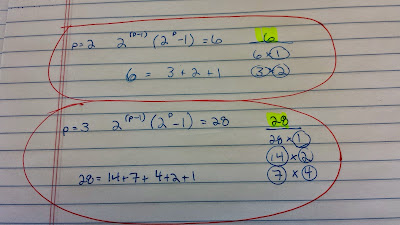 p=2 2^(p-1) (2^p-1) = 6 6
6×1
6 = 3+2+1 3×2
p=3 2^(p-1) (2^p-1) = 28 28
28×1
14×2
28=14+7+4+2+1 7×4